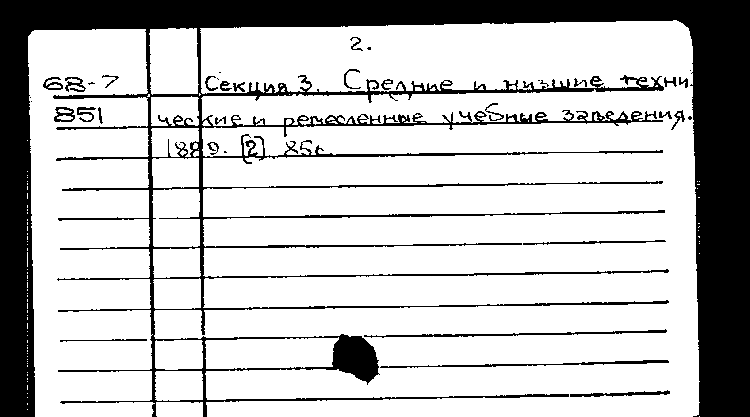 2.
68-7 Секция 3. Средние и низшие техни
851 ческие и ремесленные учебные заведения.
1889. [2] 85с.